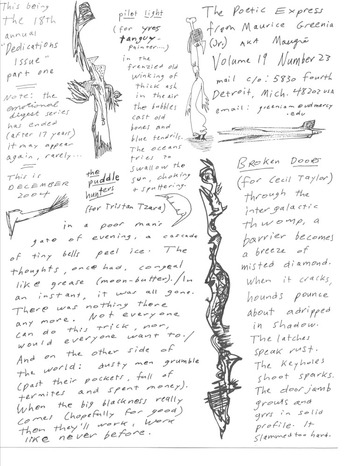 This being
the 18th
annual
"Dedications
Issue"
part one
Note: the
emotional
digest series
has ended
(after 17 years)
it may appear
again, rarely...
This is
DECEMBER
2004
pilot light
(for yves
tanguy-
Painter...)
in the
frenzied old
winking of
thick ash
in the air
the bubbles
cast old
bones and
blue tendrils.
The oceans
tries to
swallow the
sun, choking
+ sputtering.
The Poetic Express
from Maurice Greenia
(Jr.) AKA Maugre
Volume 19 Number 23
mail c/o: 5830 fourth
Detroit, Mich. 48202 USA
email: greeniam@udmercy
.edu
the
puddle
hunters
(for Tristan Tzara)
in a poor man's
gate of evening, a cascade
of tiny bells peel ice. The
thoughts, once had, congeal
like grease (moon-butter)./In
an instant, it was all gone.
There was nothing there
any more. Not everyone
can do this trick, nor,
would everyone want to./
And on the other side of
the world: dusty men grumble
(past their pockets, full of
termites and spent money).
When the big blackness really
comes (hopefully for good)
then they'll work, work
like never before.
Broken Doors
(for Cecil Taylor)
through the
intergalactic
thwomp, a
barrier becomes
a breeze of
misted diamond.
When it cracks,
hounds pounce
about a dripped
in shadow.
The latches
speak rust.
The keyholes
shoot sparks.
The door jamb
groves and
grrs in solid
profile. It
slammed too hard.